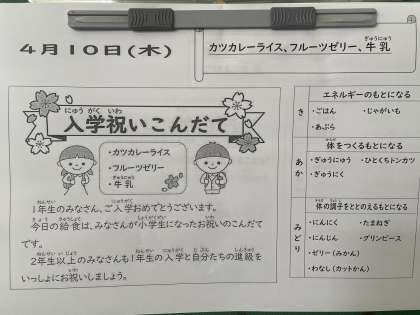 4月10日(木)
カツカレーライス、フルーツゼリー、牛乳
入学祝いこんだて
・カツカレーライス
・フルーツゼリー
・牛乳
1年生のみなさん、ご入学おめでとうございます。
今日の給食は、みなさんが小学生になったお祝いのこんだて
です。
2年生以上のみなさんも1年生の入学と自分たちの進級を
いっしょにお祝いしましょう。
エネルギーのもとになる
き
・ごはん ・じゃがいも
・あぶら
体をつくるもとになる
あか
・ぎゅうにゅう ・ひとくちトンカツ
・ぎゅうにく
体の調子をととのえるもとになる
みどり
・にんにく ・たまねぎ
・にんじん ・グリンピース
・ゼリー(みかん)
・わなし(カットかん)